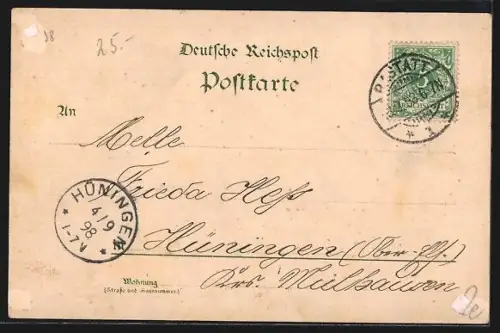 25.-
Deutsche Reichspost
Postkarte
RASTATT
An
Melle
Frieda Hess
HÜNINGEN
4/9
98
1-7N
in
Hüningen (Ober-Els.)
Krs. Mülhausen
Wohnung
(Straße und Hausnummer)